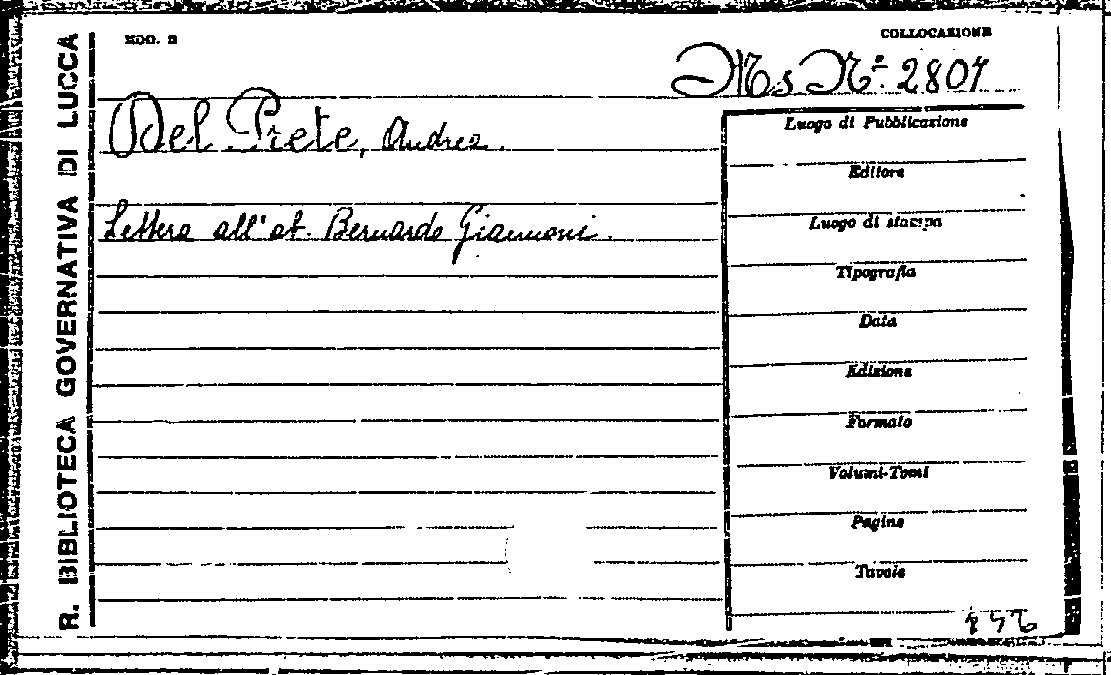 R. BIBLIOTECA GOVERNATIVA DI LUCCA
MOD. 2
COLLOCAZIONE
Ms Nº. 2807
Del Prete, Andrea.
Lettera all'ab. Bernardo Giannoni.
Luogo di Pubblicazione
Editore
Luogo di stampa
Tipografia
Data
Edizione
Formato
Volumi-Tomi
Pagine
Tavole